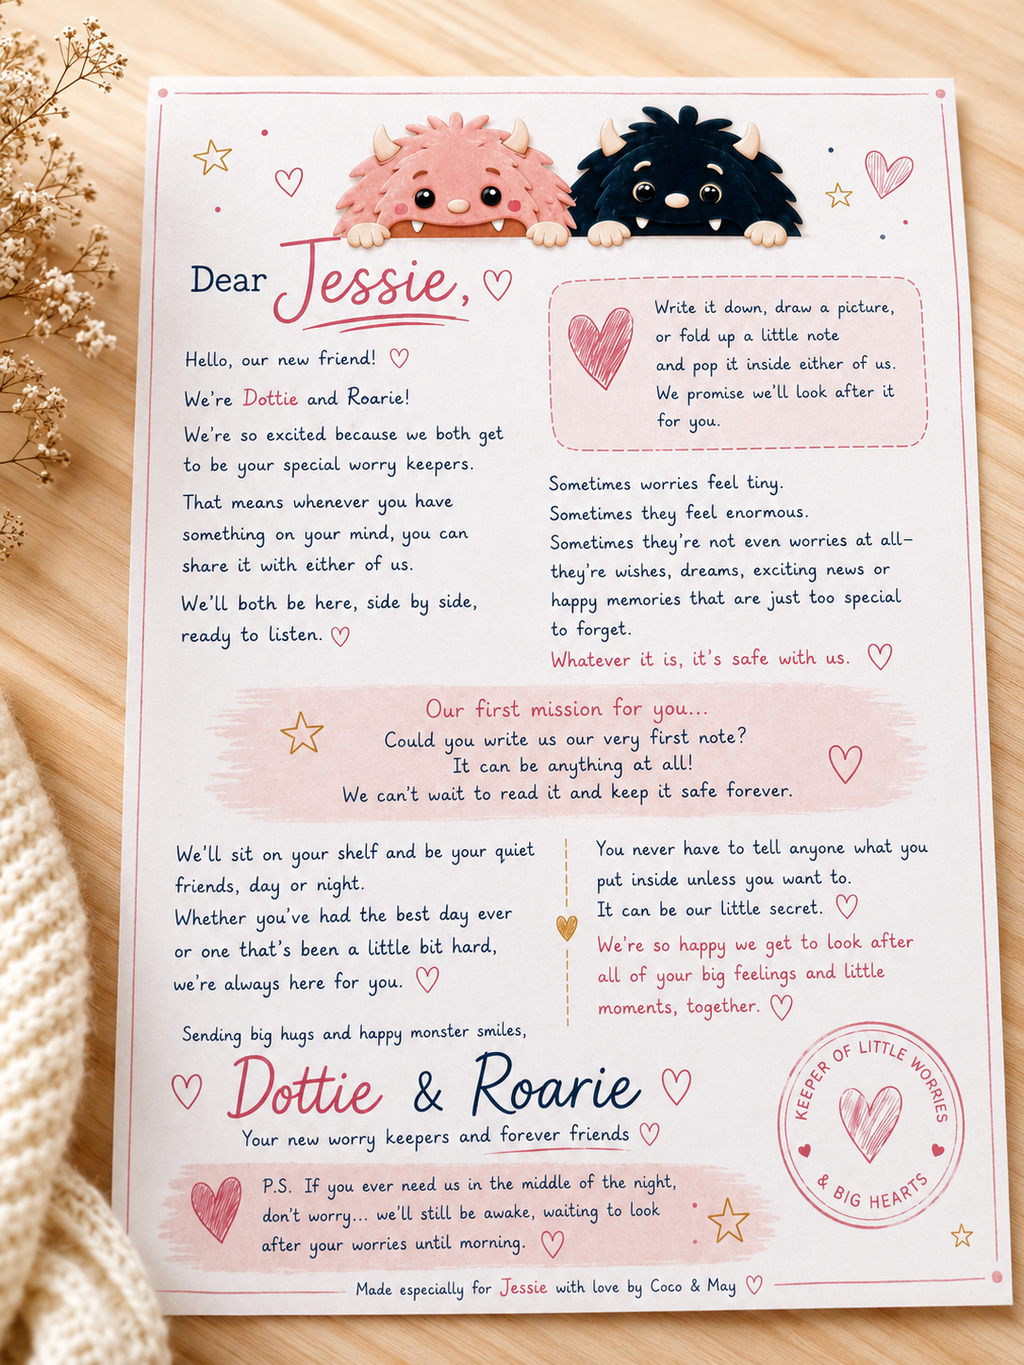 Dear Jessie,
Hello, our new friend!
We're Dottie and Roarie!
We're so excited because we both get
to be your special worry keepers.
That means whenever you have
something on your mind, you can
share it with either of us.
We'll both be here, side by side,
ready to listen.
Write it down, draw a picture,
or fold up a little note
and pop it inside either of us.
We promise we'll look after it
for you.
Sometimes worries feel tiny.
Sometimes they feel enormous.
Sometimes they're not even worries at all–
they're wishes, dreams, exciting news or
happy memories that are just too special
to forget.
Whatever it is, it's safe with us.
Our first mission for you...
Could you write us our very first note?
It can be anything at all!
We can't wait to read it and keep it safe forever.
We'll sit on your shelf and be your quiet
friends, day or night.
Whether you've had the best day ever
or one that's been a little bit hard,
we're always here for you.
You never have to tell anyone what you
put inside unless you want to.
It can be our little secret.
We're so happy we get to look after
all of your big feelings and little
moments, together.
Sending big hugs and happy monster smiles,
Dottie & Roarie
Your new worry keepers and forever friends
KEEPER OF LITTLE WORRIES
& BIG HEARTS
P.S. If you ever need us in the middle of the night,
don't worry... we'll still be awake, waiting to look
after your worries until morning.
Made especially for Jessie with love by Coco & May